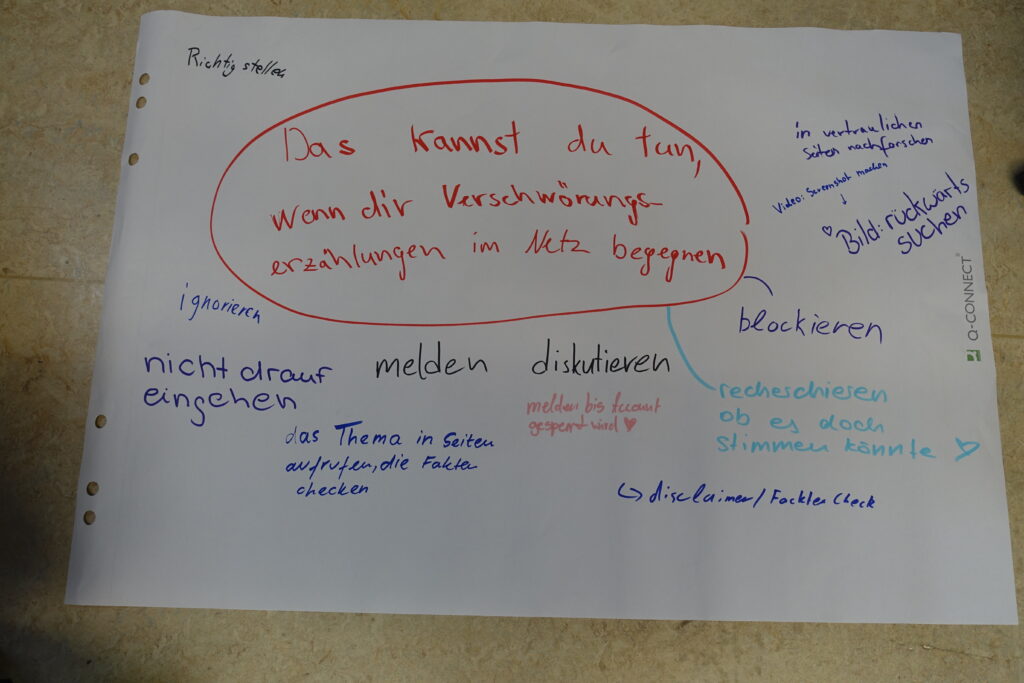 Richtig stellen
Das kannst du tun,
wenn dir Verschwörungs-
erzählungen im Netz begegnen
in vertraulichen
Seiten nachforschen
Video: Screenshot machen
↓
♡ Bild: rückwärts
suchen
Q-CONNECT®
ignorieren
blockieren
nicht drauf
eingehen
melden
diskutieren
melden bis
gesperrt wird ♥
recheschiesen
ob es doch
stimmen könnte
das Thema in Seiten
aufrufen, die Fakten
checken
↳ disclaimer/ Fackten Check